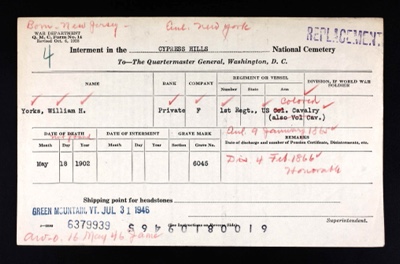 Born New Jersey - Enl. New York
WAR DEPARTMENT
Q. M. C. Form No. 14
REPLACEMENT
4
Interment in the CYPRESS HILLS National Cemetery
To—The Quartermaster General, Washington, D. C.
NAME RANK COMPANY REGIMENT OR VESSEL DIVISION, IF WORLD WAR SOLDIER
Number State Arm
Colored
Yorks, William H. Private F 1st Regt., US Col. Cavalry
(also Vol Cav.)
DATE OF DEATH DATE OF INTERMENT GRAVE MARK
Enl. 9 January 1865
REMARKS
Month Day Year Month Day Year Section Grave No.
Date of discharge and number of Pension Certificate, Disinterment, etc.
May 18 1902 6045
Dis. 4 Feb. 1866
Honorable
Shipping point for headstones
GREEN MOUNTAIN, VT. JUL 31 1946
6379939 (See Instructions on Reverse Side)
Superintendent.
16 May 46